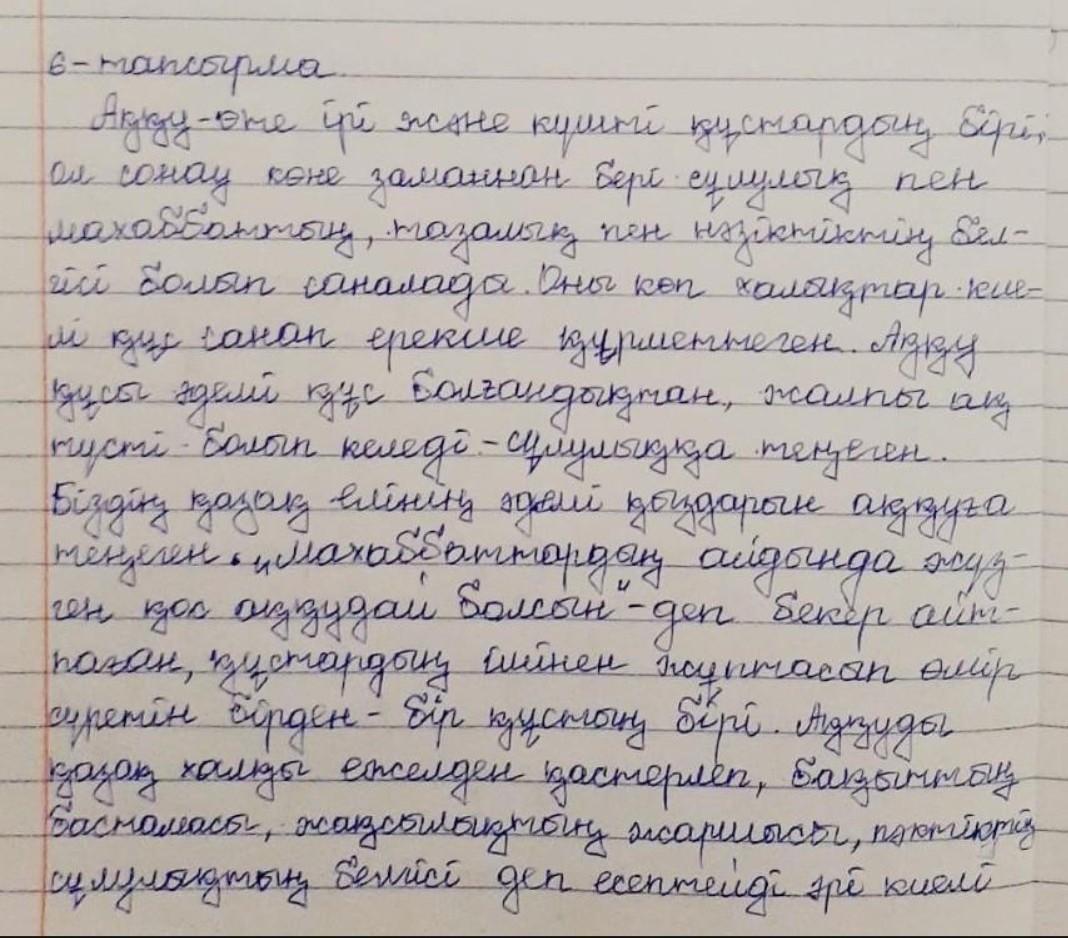 6-тапсырма.
Аққу-өте ірі және күшті құстардың бірі,
ол сонау көне заманнан бері сұлулық пен
махаббаттың, тазалық пен нәзіктіктің бел-
гісі болып саналады. Оны көп халықтар кие-
лі құс санап ерекше құрметтеген. Аққу
құсы әдемі құс болғандықтан, жалпы ақ
түсті болып келеді-сұлулыққа теңеген.
Біздің қазақ елінің әдемі қыздарын аққуға
теңеген. „Махаббаттардың айдында жүз-
ген қос аққудай болсын"-деп бекер айт-
паған, құстардың ішінен жұптасып өмір
сүретін бірден-бір құстың бірі. Аққуды
қазақ халқы ежелден қастерлеп, бақыттың
бастамасы, жақсылықтың жаршысы, пәктіктің
сұлулықтың белгісі деп есептейді әрі киелі